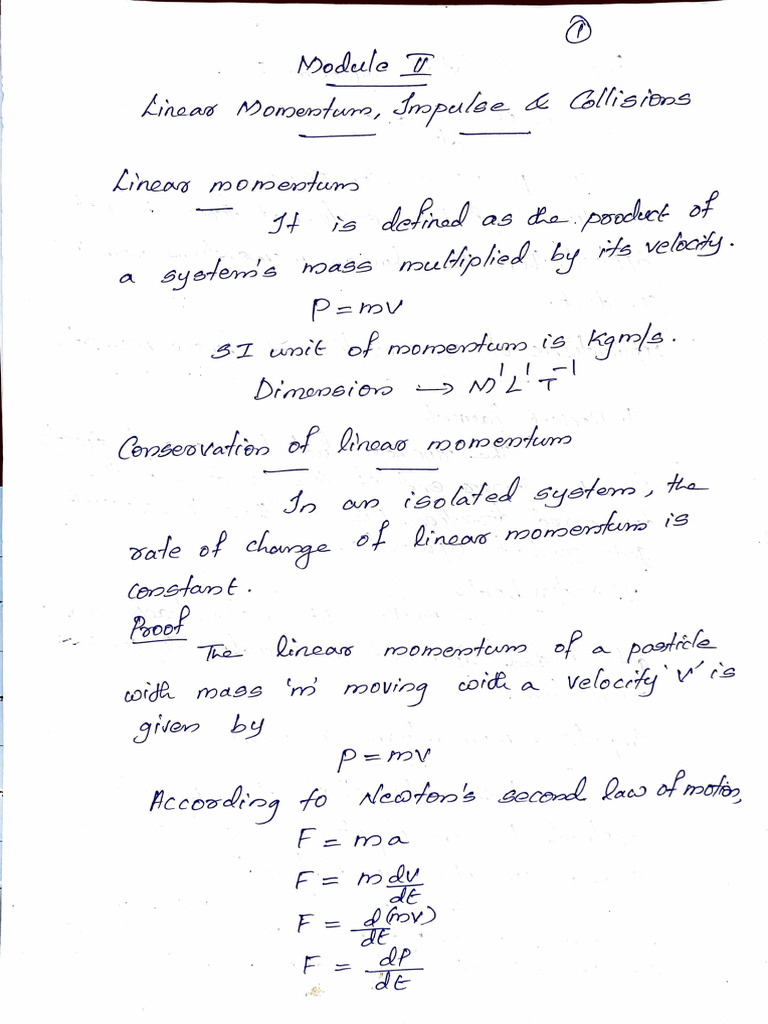 1
Module II
Linear Momentum, Impulse & Collisions
Linear momentum
It is defined as the product of
a system's mass multiplied by its velocity.
P = mv
SI unit of momentum is kgm/s.
Dimension → M¹L¹T⁻¹
Conservation of linear momentum
In an isolated system, the
rate of change of linear momentum is
constant.
Proof
The linear momentum of a particle
with mass 'm' moving with a velocity 'v' is
given by
P = mv
According to Newton's second law of motion,
F = ma
F = m dv/dt
F = d(mv)/dt
F = dP/dt